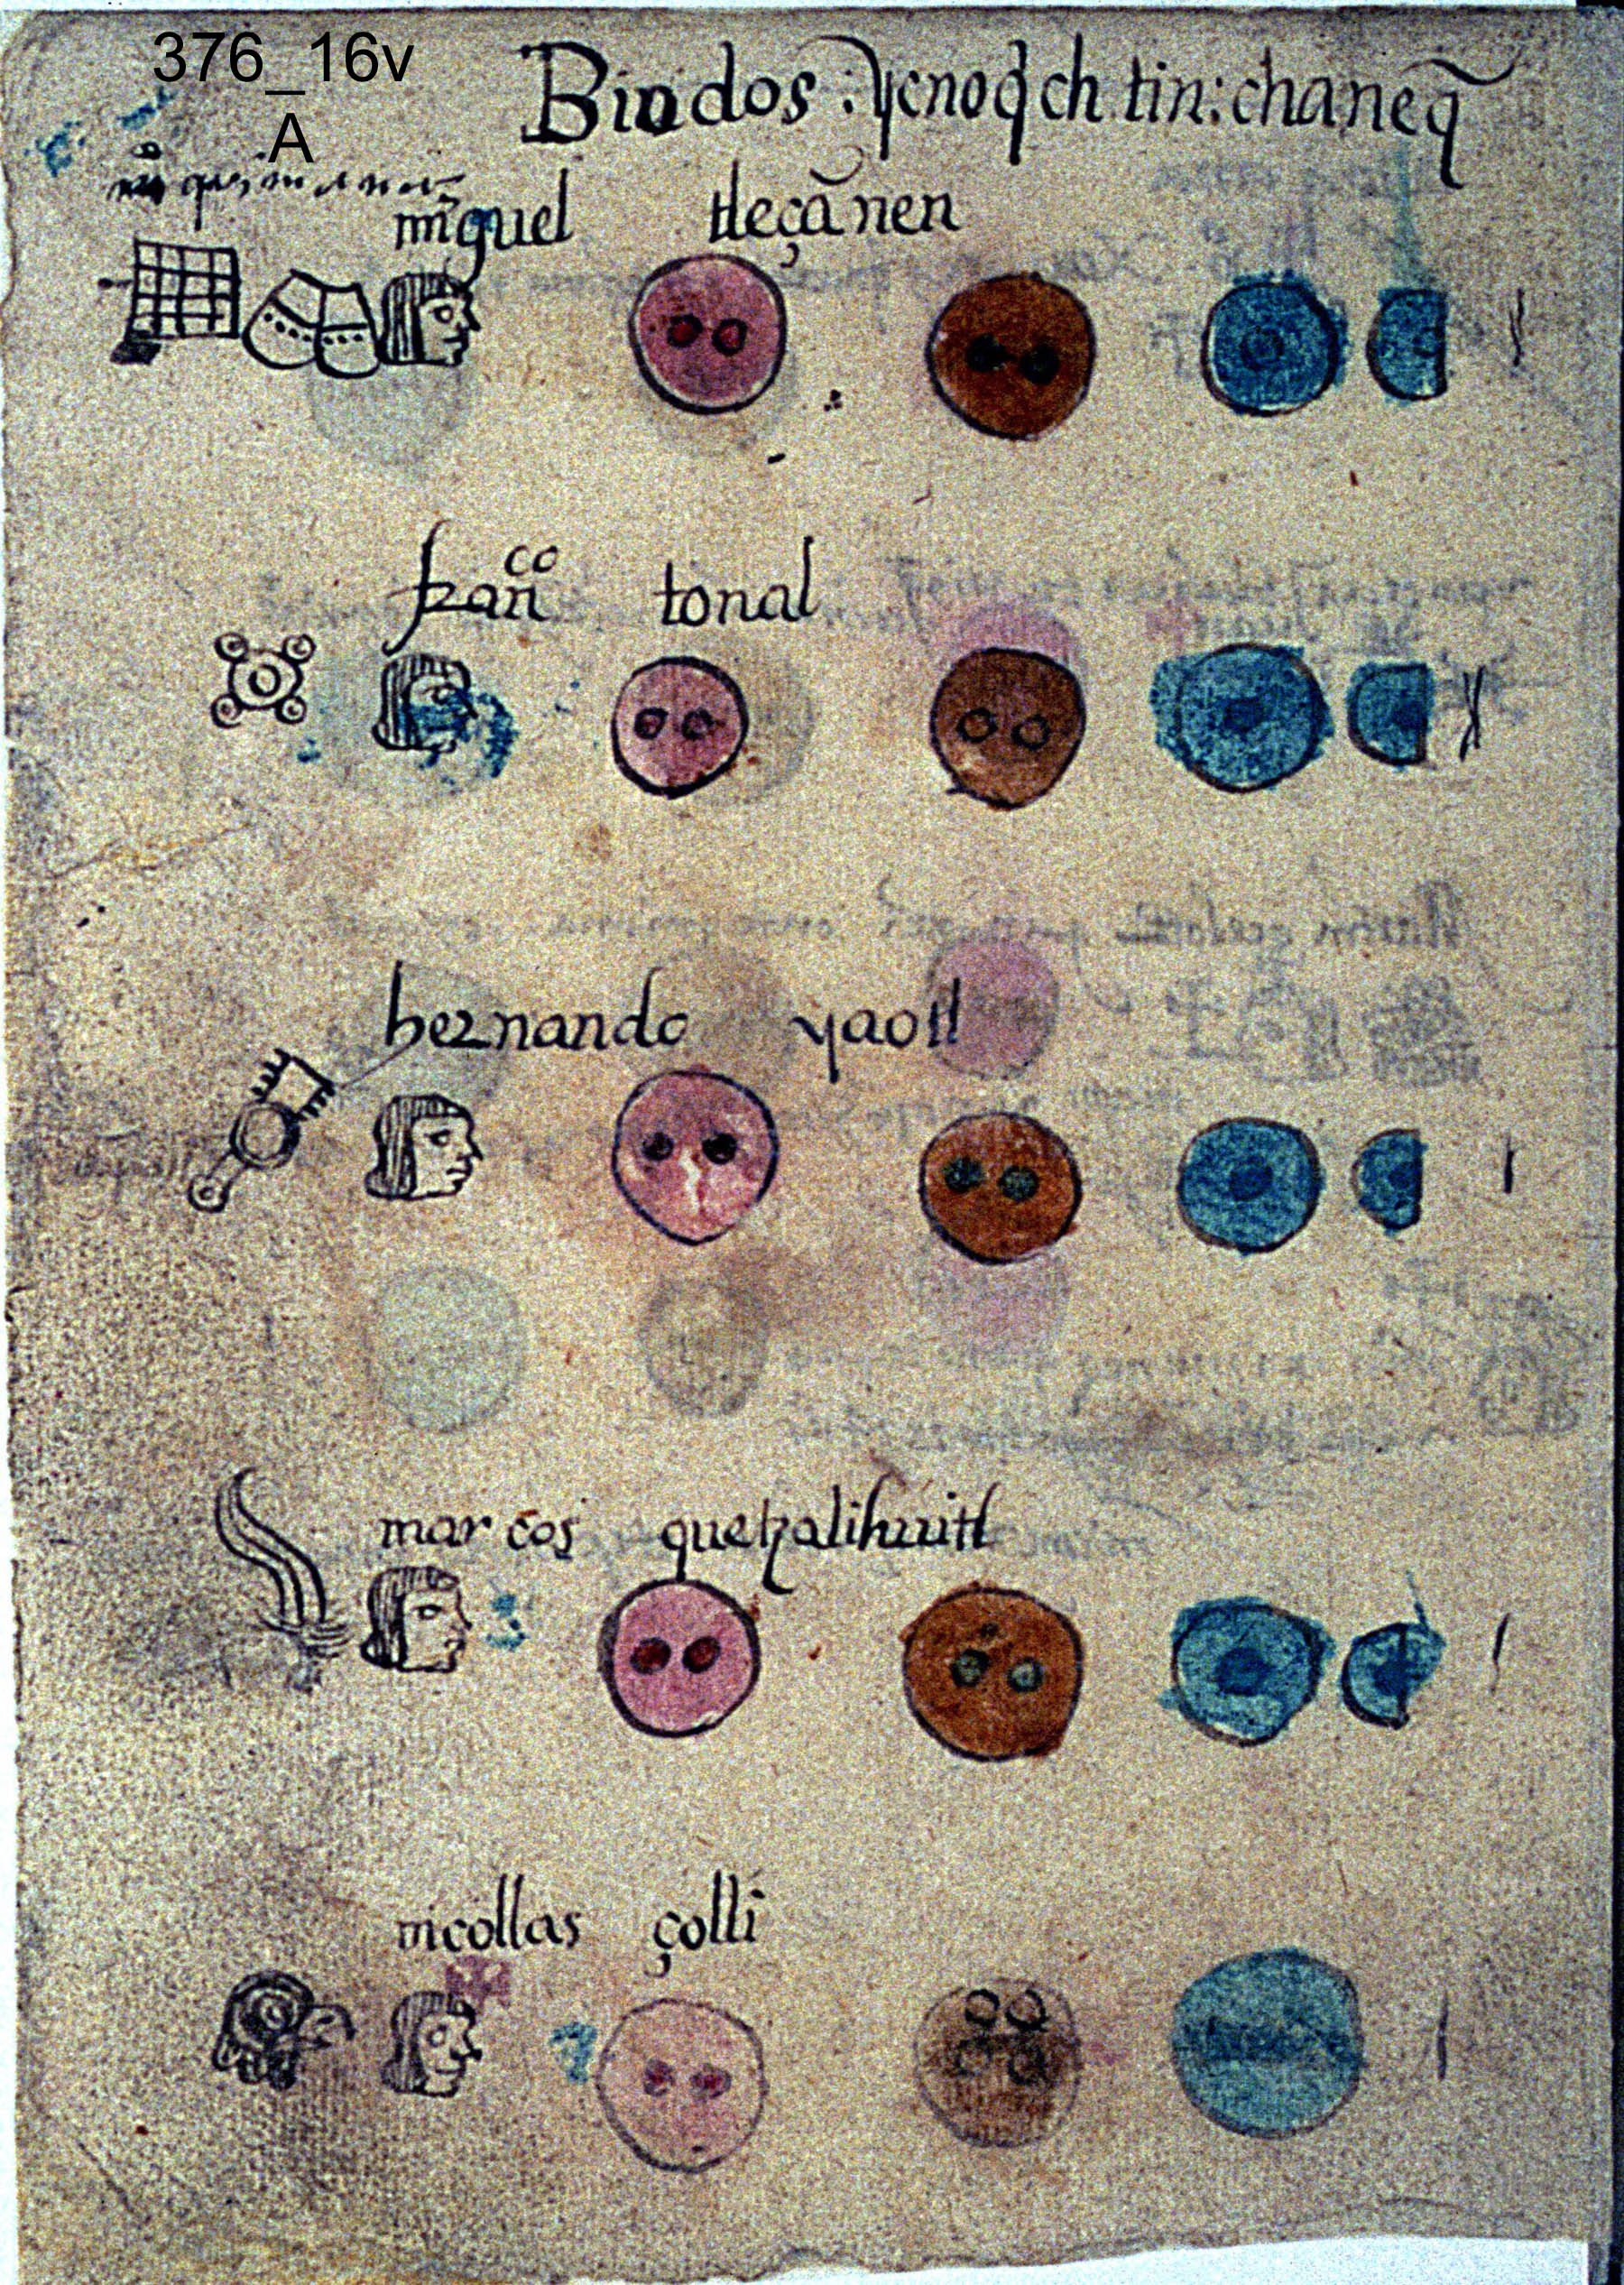 376_16v
A
Biudos : ycnoq̄ch tin : chaneq̄
miguel tleçānen
franco tonal
hernando yaotl
marcos quetzalihuitl
nicollas çolli